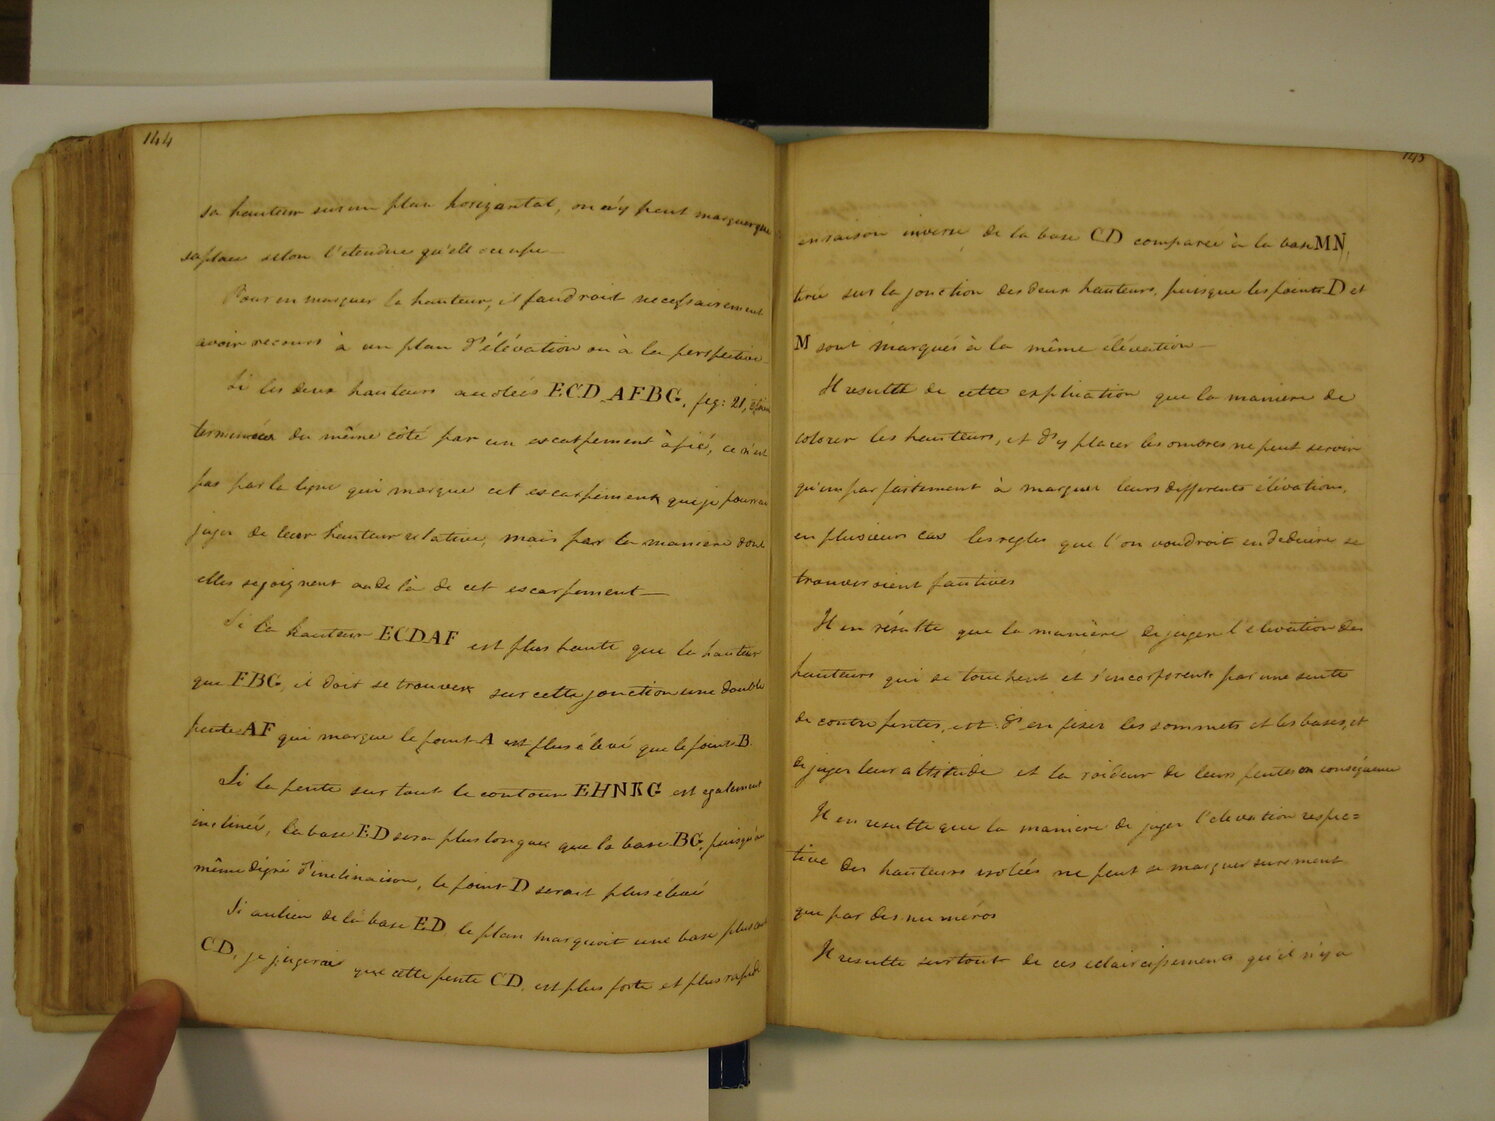 144
sa hauteur sur un plan horizontal, on n'y peut marquer que
sa place selon l'étendue qu'elle occupe
Pour en marquer la hauteur, il faudroit necessairement
avoir recours à un plan d'élévation ou à la perspective
Si les deux hauteurs accolées ECD_AFBG, fig: 21, étoient
terminées du même côté par un escarpement à pic, ce n'est
pas par la ligne qui marque cet escarpement que je pourrai
juger de leur hauteur relative, mais par la maniere dont
elles se joignent au de là de cet escarpement—
Si la hauteur ECDAF est plus haute que la hauteur
que FBG, il doit se trouver sur cette jonction une double
pente AF qui marque le point A est plus élevé que le point B.
Si la pente sur tout le contour EHNKG est egalement
inclinée, la base ED sera plus longue que la base BG, puisqu'au
même dégré d'inclinaison, le point D seroit plus élevé
Si au lieu de la base ED le plan marquoit une base plus
CD, je jugerai que cette pente CD, est plus forte et plus rapide
145
en raison inverse de la base CD comparée à la base MN,
tirée sur la jonction des deux hauteurs, puisque les points D et
M sont marqués à la même élévation—
Il resulte de cette explication que la maniere de
colorer les hauteurs, et d'y placer les ombres ne peut servir
qu'imparfaitement à marquer leurs differents élévations,
en plusieurs cas les regles que l'on voudroit en deduire se
trouveroient fautives
Il en résulte que la manière de juger l'elevation des
hauteurs qui se touchent et s'incorporent par une suite
de contre pentes, est d'en fixer les sommets et les bases, et
de juger leur altitude et la roideur de leurs pentes en conséquence
Il en resulte que la maniere de juger l'elevation respec=
tive des hauteurs isolées ne peut se marquer surement
que par des numéros
Il resulte surtout de ces eclaircissements qu'il n'y a